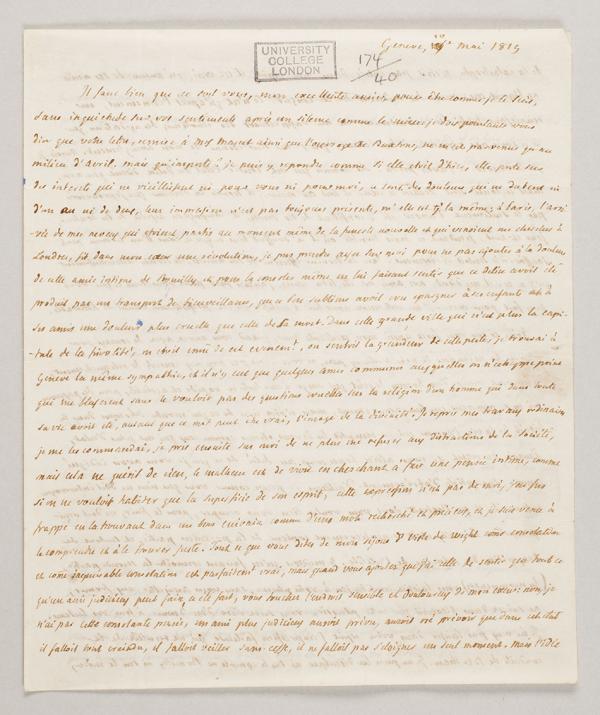 Geneve, Mai 1819
UNIVERSITY
COLLEGE
LONDON
174
40
Il faut bien que ce soit vous, mon excellente amie, pour être comme je le suis,
sans inquiétude sur vos sentiments après un silence comme le mien: je dois pourtant vous
dire que votre lettre, remise à Mr Mayet ainsi que l'ouvrage de Buxton, ne m'est parvenue qu'au
milieu d'avril. mais qu'importe? je puis y repondre comme si elle etoit d'hier, elle porte sur
des interets qui ne vieillissent ni pour vous ni pour moi, ce sont des douleurs qui ne datent ni
d'un an ni de deux, leur impression n'est pas toujours présente, mais elle est tj la même; à Paris, l'arri-
vée de mes neveux qui etoient partis au moment même de la funeste nouvelle et qui venoient me chercher à
Londres, fit dans mon cœur une révolution, je pus prendre assez sur moi pour ne pas ajouter à la douleur
de cette amie intime de Romilly, et pour la consoler même en lui faisant sentir que ce delire avoit été
produit par un transport de bienveillance, que ce père sublime avoit cru epargner à ses enfants et à
ses amis une douleur plus cruelle que celle de la mort. Dans cette grande ville qui n'est plus la capi-
tale de la frivolité, on etoit emu de cet evenement, on sentoit la grandeur de cette perte; je trouvai à
Geneve la même sympathie, et il n'y eut que quelques ames communes auxquelles on n'echappe point
qui me blesserent sans le vouloir par des questions cruelles sur la religion d'un homme qui dans toute
sa vie avoit été, autant que ce mot peut être vrai, l'image de la divinité. Je repris mes travaux ordinaires
je me les commandai, je pris ensuite sur moi de ne plus me refuser aux distractions de la societé,
mais cela ne guérit de rien, le malheur est de vivre en cherchant à fuir une pensée intime, comme
si on ne vouloit habiter que la superficie de son esprit; cette expression n'est pas de moi, j'en fus
frappé en la trouvant dans un bon ecrivain comme d'un mot recherché et précieux, et je suis venu à
la comprendre et à le trouver juste. Tout ce que vous dites de mon séjour à l'isle de Wight comme consolation
et comme inépuisable consolation est parfaitement vrai, mais quand vous ajoutez que j'ai celle de sentir que tout ce
qu'un ami judicieux peut faire a été fait, vous touchez l'endroit sensible et douloureux de mon cœur: non, je
n'ai pas cette consolante pensée, un ami plus judicieux auroit prévu, auroit osé prévoir que dans cet état
il falloit tout craindre, il falloit veiller sans cesse, il ne falloit pas s'eloigner un seul moment. mais l'idée